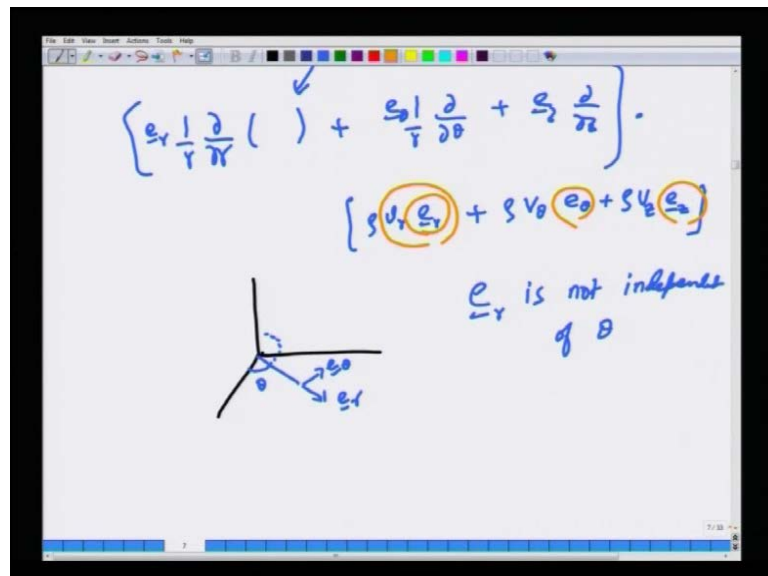 File Edit View Insert Actions Tools Help
B I
{e̲ᵣ 1/r ∂/∂r ( ) + e̲θ 1/r ∂/∂θ + e̲z ∂/∂z} .
[ρ vᵣ e̲ᵣ + ρ vθ e̲θ + ρ vz e̲z]
e̲ᵣ is not independent
of θ
θ
e̲θ
e̲ᵣ
7/33
7